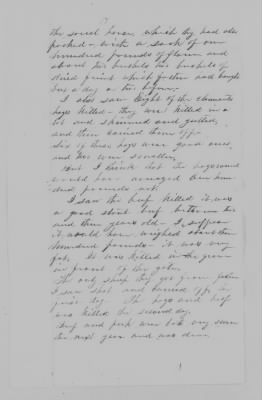 the sorrel horse which they had also
packed - with a sack of one
hundred pounds of flour and
about six bushels bushels of
dried fruit which father had bought
but a day or two before.
I also saw Eight of the claimants
hogs killed - they were killed in a
lot and skinned and gutted,
and then carried them off.
Six of these hogs were good ones,
and two were smaller,
But I think that the hogs would
would have averaged two hun
dred pounds net.
I saw the beef killed it was
a good stout beef between two
and three years old - I suppose
it would have weighed about
hundred pounds - it was very
fat, It was killed in the grove
in front of the gate.
The only sheep they got from father
I saw shot and carried off, the
first day The hogs and beef
was killed the second day.
Beef and pork was both very scarce
the next year and was dear